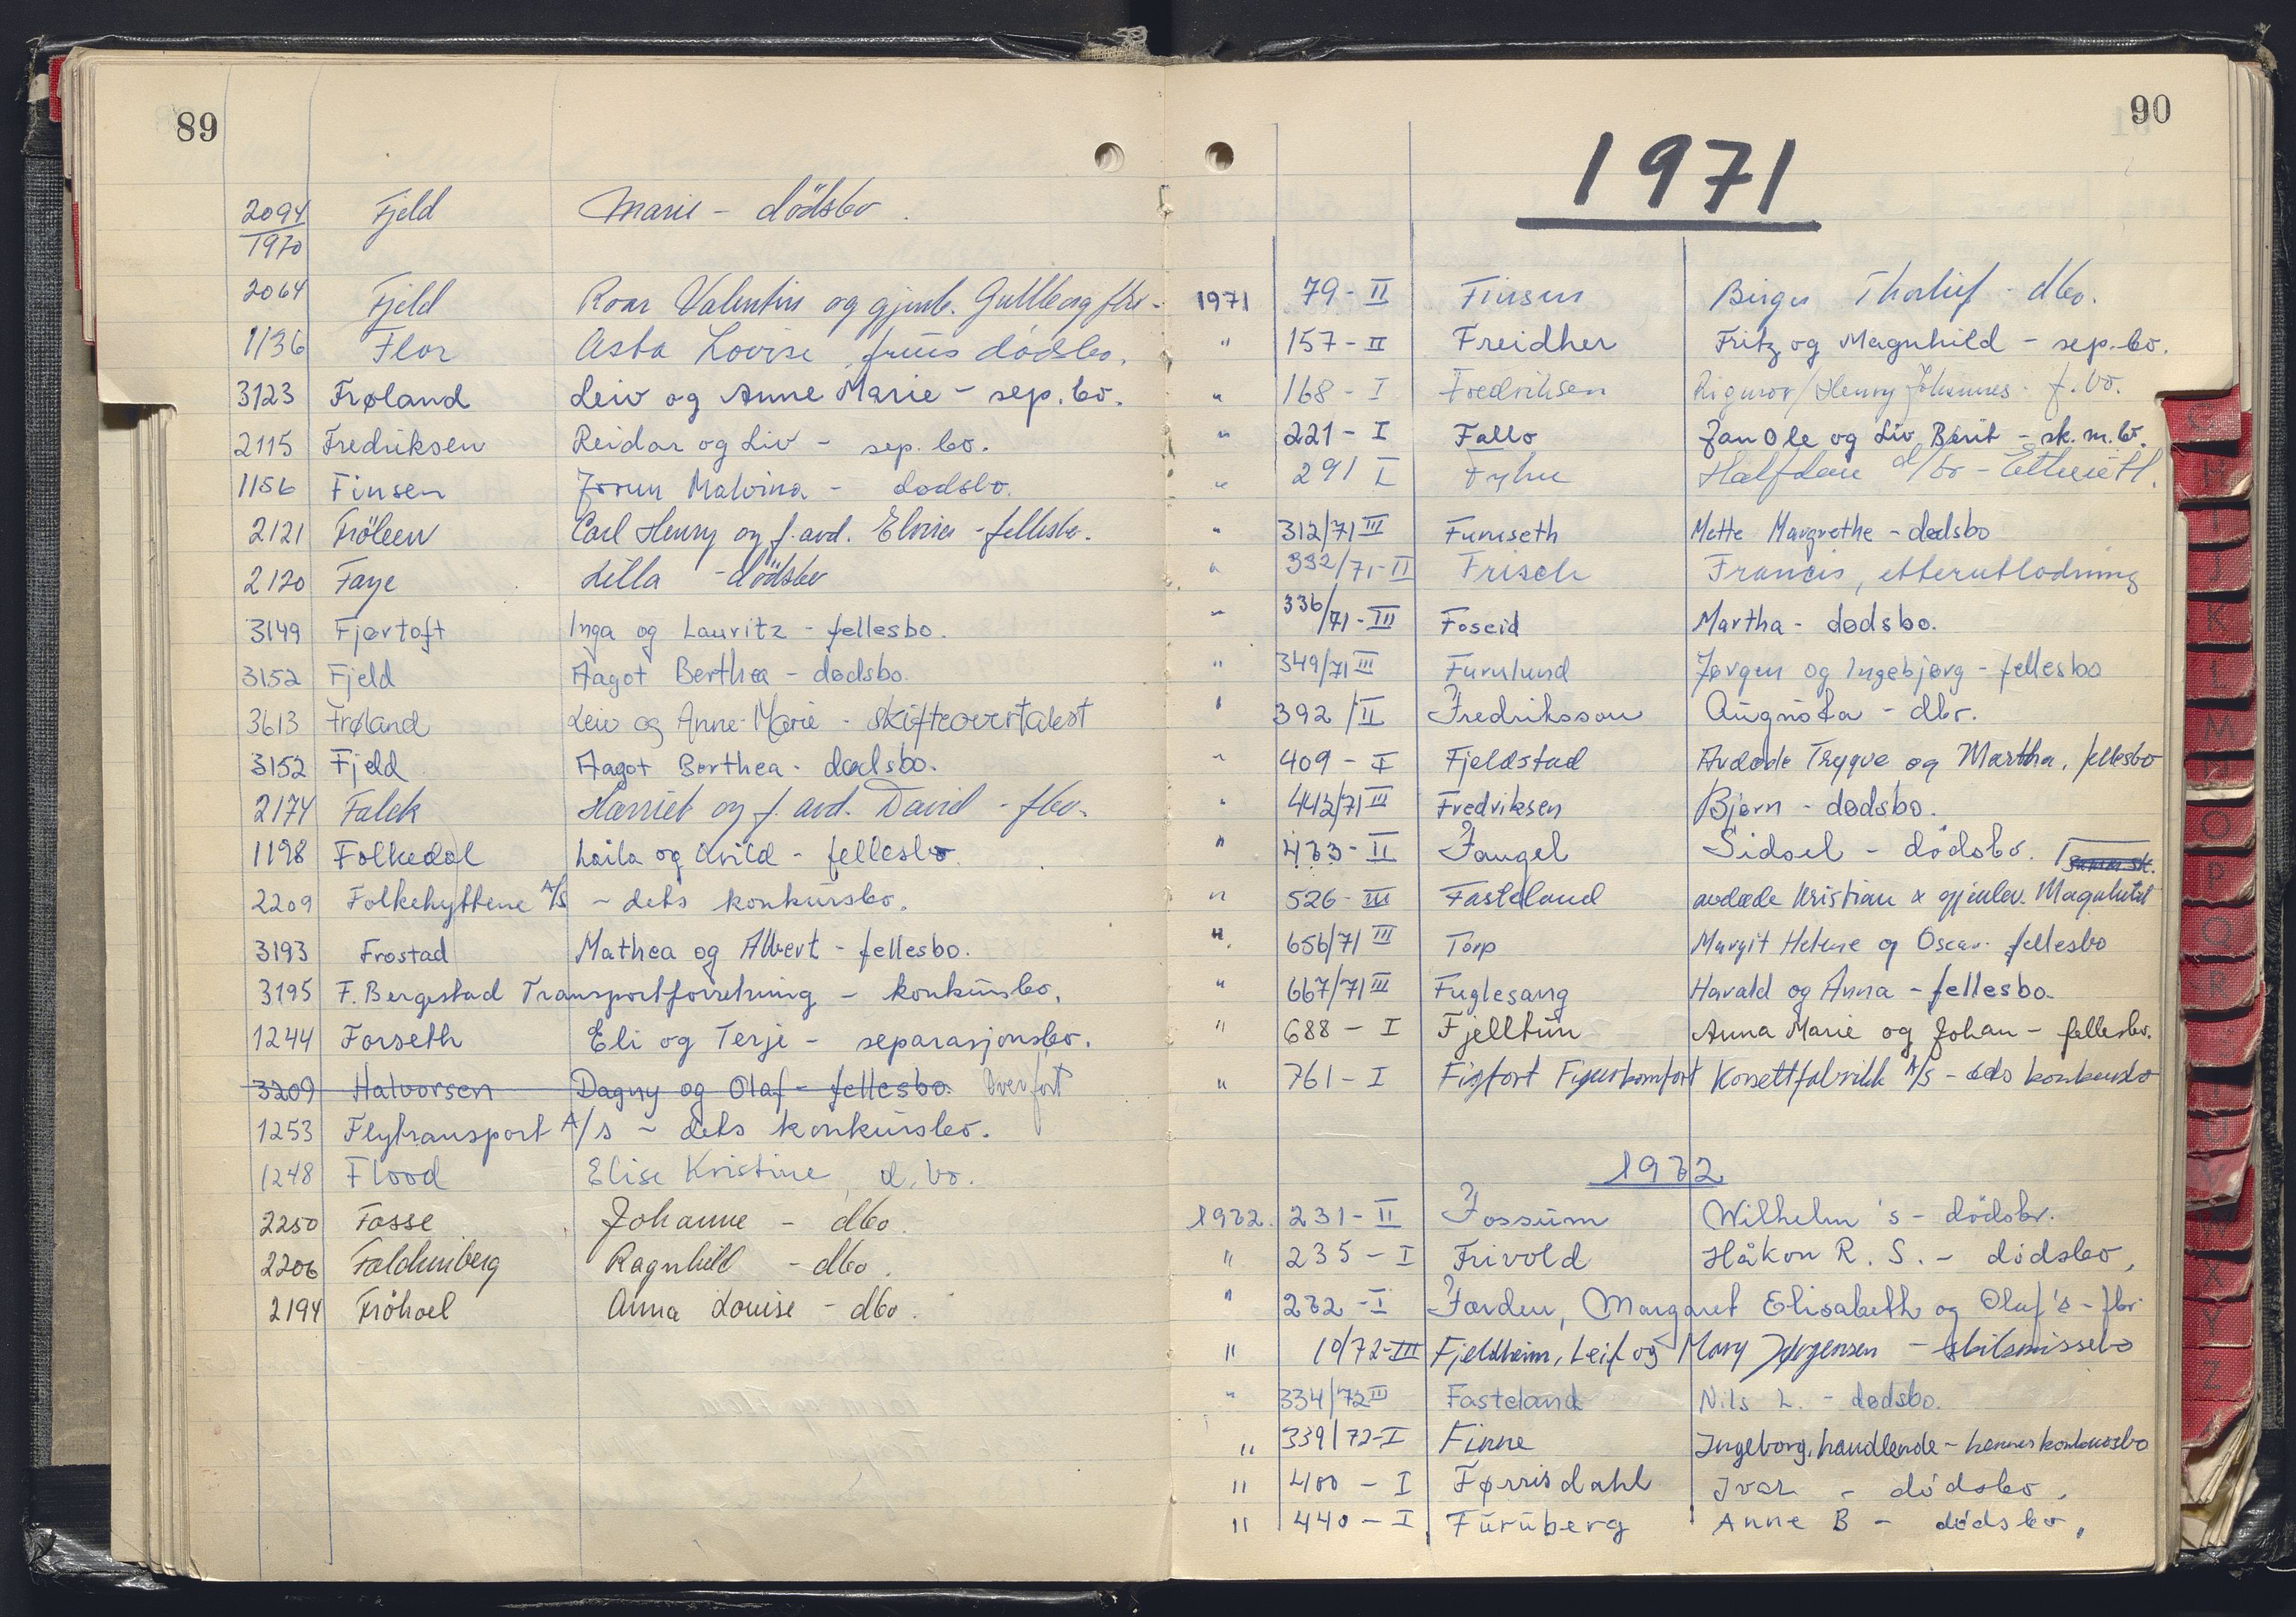 89
2094/1970 Fjeld Marie - dödsbo.
2064 Fjeld Roar Valentin og gjenl. Gullborg fbo -
1136 Flor Asta Lovise, frues dödsbo.
3123 Frøland Leiv og Anne Marie - sep. bo.
2115 Fredriksen Reidar og Liv - sep. bo.
1156 Finsen Malvina - dødsbo.
2121 Fröleen Carl Henry og f. avd. Elvira - fellesbo.
2120 Faye Lilla - dödsbo
3149 Fjørtoft Inga og Lauritz - fellesbo.
3152 Fjeld Aagot Berthea - dødsbo.
3613 Frøland Leiv og Anne-Marie - skifteovertakst
3152 Fjeld Aagot Berthea - dødsbo.
2174 Falck Harriet og f. avd. David - fbo.
1198 Folkedal Laila og Arild - fellesbo.
2209 Folkehyttene A/S - dets konkursbo.
3193 Frostad Mathea og Albert - fellesbo.
3195 F. Bergestad Transportforretning - konkursbo.
1244 Forseth Eli og Terje - separasjonsbo.
3209 Halvorsen Dagny og Olaf - fellesbo. Overført
1253 Flytransport A/s - dets konkursbo.
1248 Flood Elise Kristine, d. bo.
2250 Fosse Johanne - dbo.
2206 Faldenberg Ragnhild - dbo.
2194 Fröhoel Anna Louise - dbo.
90
1971
1971 79 - II Finsen Birger Thorleif - dbo.
" 157 - II Freidher Fritz og Magnhild - sep. bo.
" 168 - I Fredriksen Rigmor/Henry Johannes - f. bo.
" 221 - I Fallo Jan Ole og Liv Berit - sk. m. bo.
" 291 I Halfdan d/bo -
" 312/71 III Furuseth Mette Margrethe - dødsbo
" 332/71 - II Frisch Francis, etterutlodning
" 336/71 - III Foseid Martha - dødsbo.
" 349/71 III Furulund Jørgen og Ingebjørg - fellesbo
" 392 / II Fredriksson Augusta - dbo.
" 409 - I Fjeldstad Avdøde Trygve og Martha, fellesbo
" 442/71 III Fredriksen Bjørn - dødsbo.
" 473 - II Faugel Sidsel - dödsbo.
" 526 - III Fasteland avdøde Kristian & gjenlev. Magnhild
" 656/71 III Torp Margit Helene og Oscar - fellesbo
" 667/71 III Fuglesang Harald og Anna - fellesbo.
" 688 - I Fjelltun Anna Marie og Johan - fellesbo.
" 761 - I Figfort Figurkomfort Korsettfabrikk A/S - dets konkursbo
1972
1972. 231 - II Fossum Wilhelm's - dödsbo.
" 235 - I Frivold Håkon R. S. - dödsbo,
" 272 - I Færden, Margaret Elisabeth og Oluf's - fbo
" 10/72 - III Fjeldheim, Leif og Mary Jørgensen - skilsmissebo
" 334/72 III Fasteland Nils L. - dødsbo.
" 339/72 - I Finne Ingeborg, handlende - hennes konkursbo
" 400 - I Førrisdahl Ivar - dödsbo,
" 440 - I Furuberg Anne B - dødsbo,
C
H
I
J
K
L
M
N
O
P
Q
R
X
Y
Z